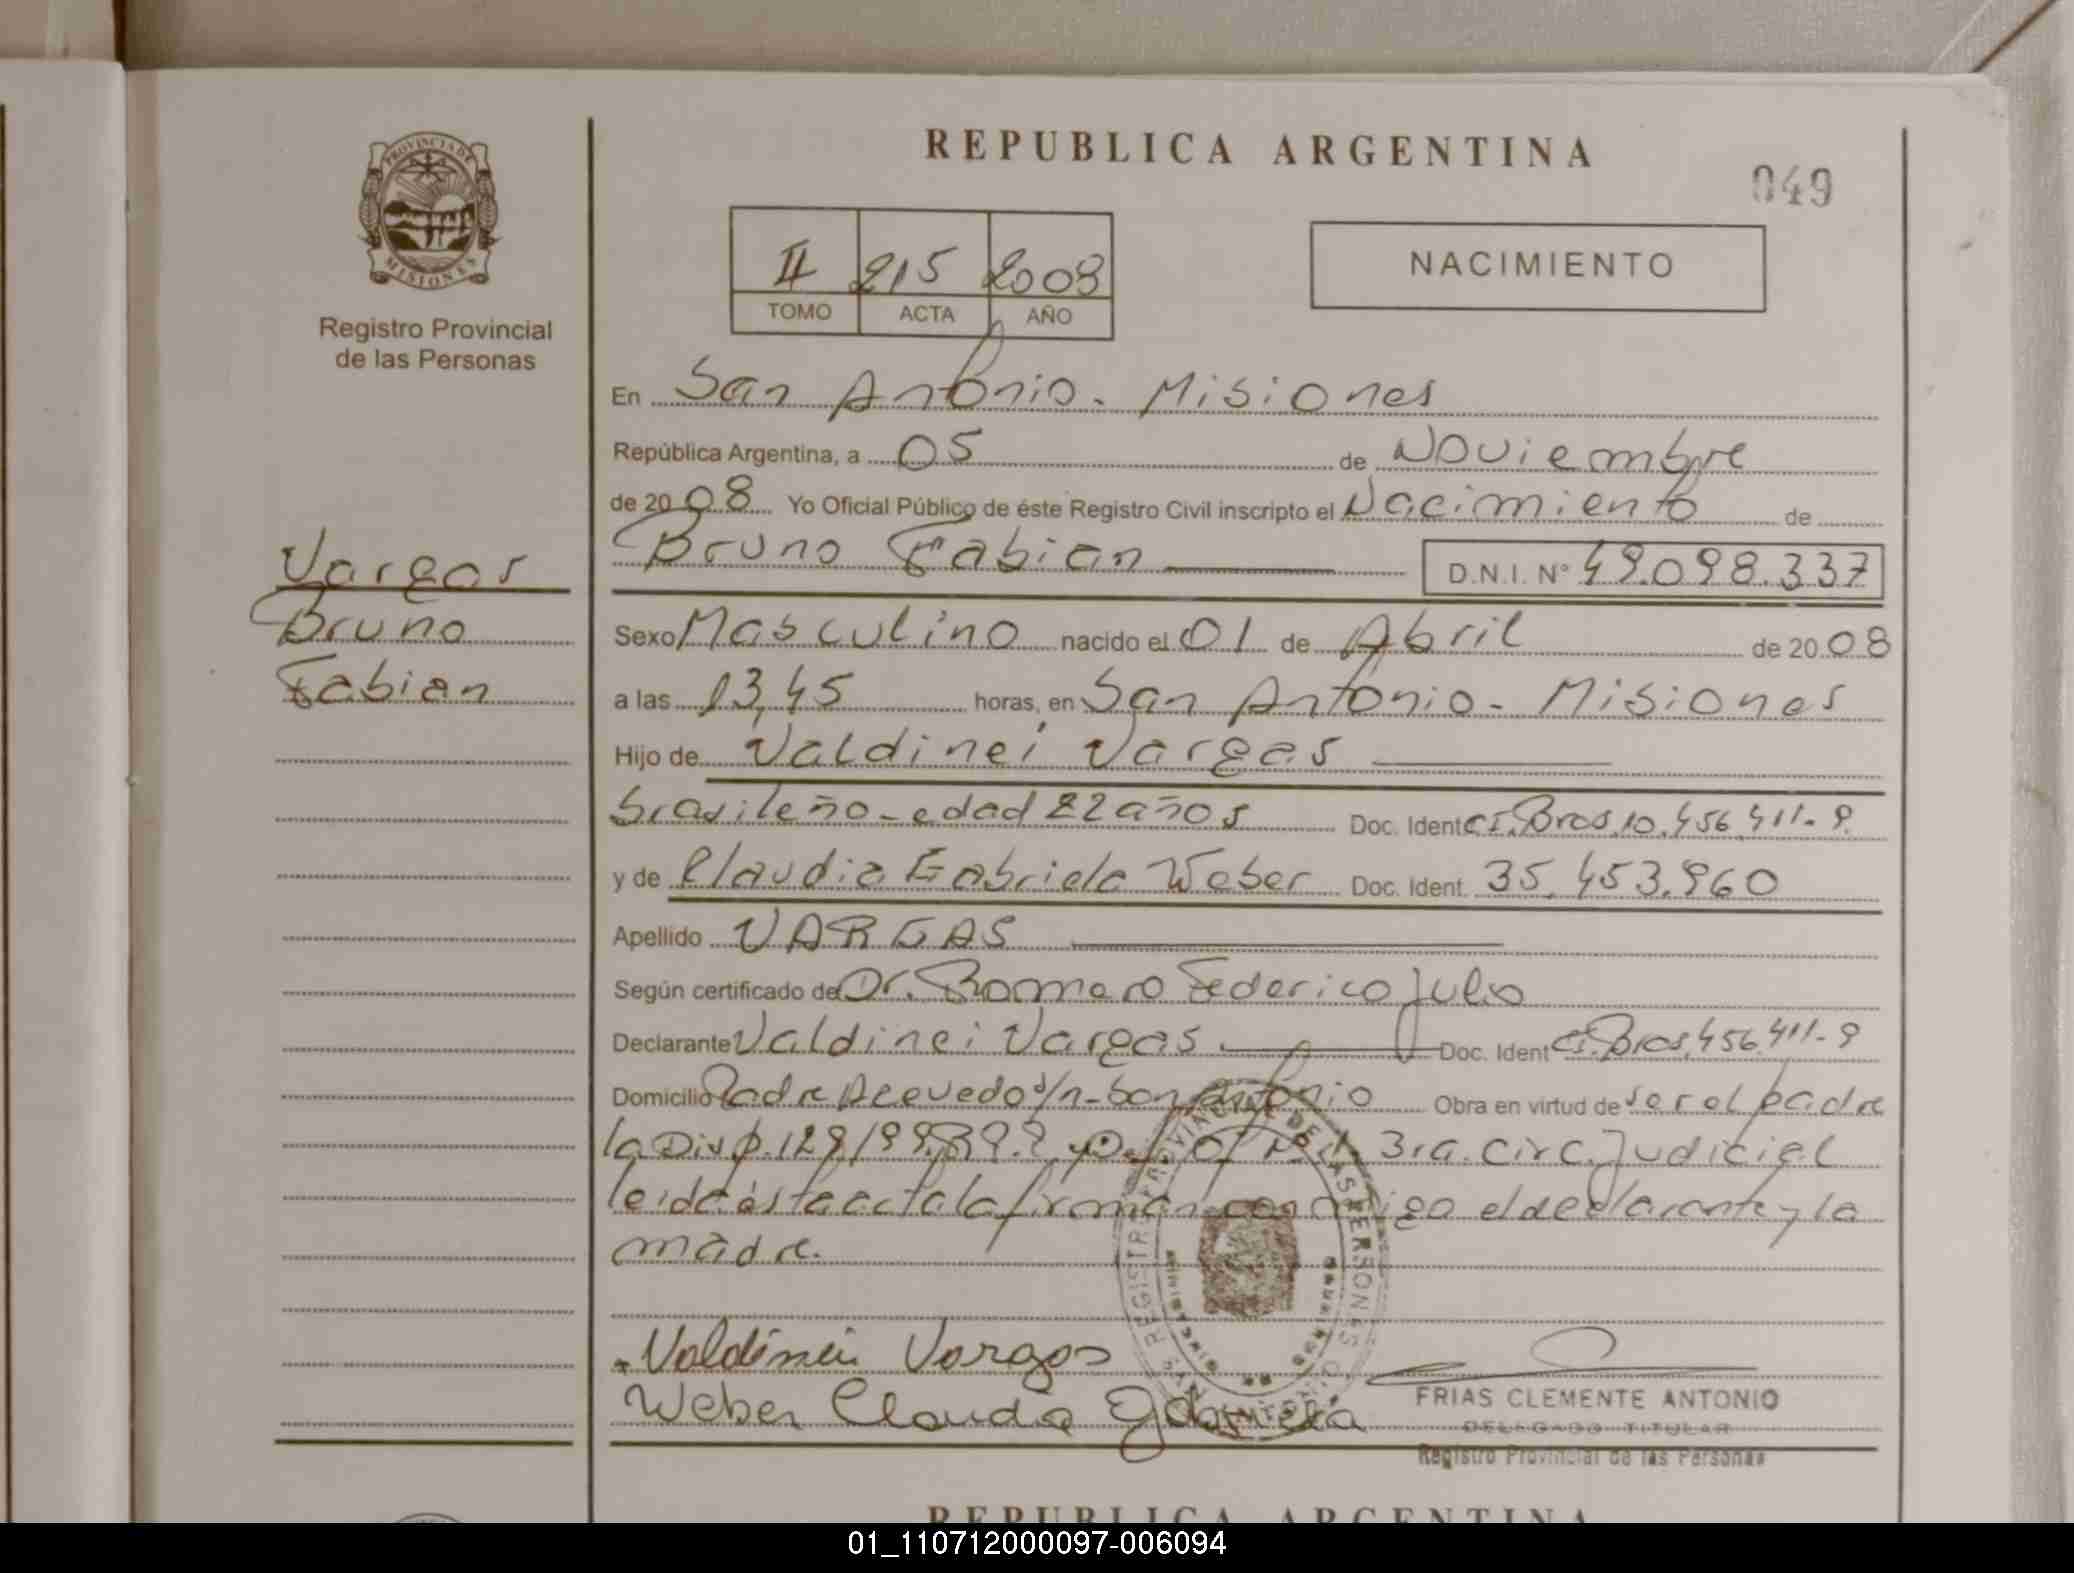 REPUBLICA ARGENTINA
049
PROVINCIA DE MISIONES
Registro Provincial
de las Personas
II 215 2008
TOMO ACTA AÑO
NACIMIENTO
En San Antonio - Misiones
República Argentina, a 05 de Noviembre
de 2008 Yo Oficial Público de éste Registro Civil inscripto el Nacimiento de
Bruno Fabian D.N.I. N° 49.098.337
Vargas
Bruno
Fabian
Sexo Masculino nacido el 01 de Abril de 2008
a las 13,45 horas, en San Antonio - Misiones
Hijo de Valdinei Vargas
brasileño - edad 22 años Doc. Ident CI. Bras 10.456.411-9.
y de Claudia Gabriela Weber Doc. Ident. 35.453.960
Apellido VARGAS
Según certificado de Dr. Romero Federico Julio
Declarante Valdinei Vargas Doc. Ident CI. Bras 456.411-9
Domicilio Padre Acevedo s/n - San Antonio Obra en virtud de ser el padre
la Disp. 129/99 3ra. Circ. Judicial
leida ésta acta la firman conmigo el declarante y la
madre.
Valdinei Vargas
Weber Claudia Gabriela
FRIAS CLEMENTE ANTONIO
DELEGADO TITULAR
Registro Provincial de las Personas
REPUBLICA ARGENTINA
01_110712000097-006094